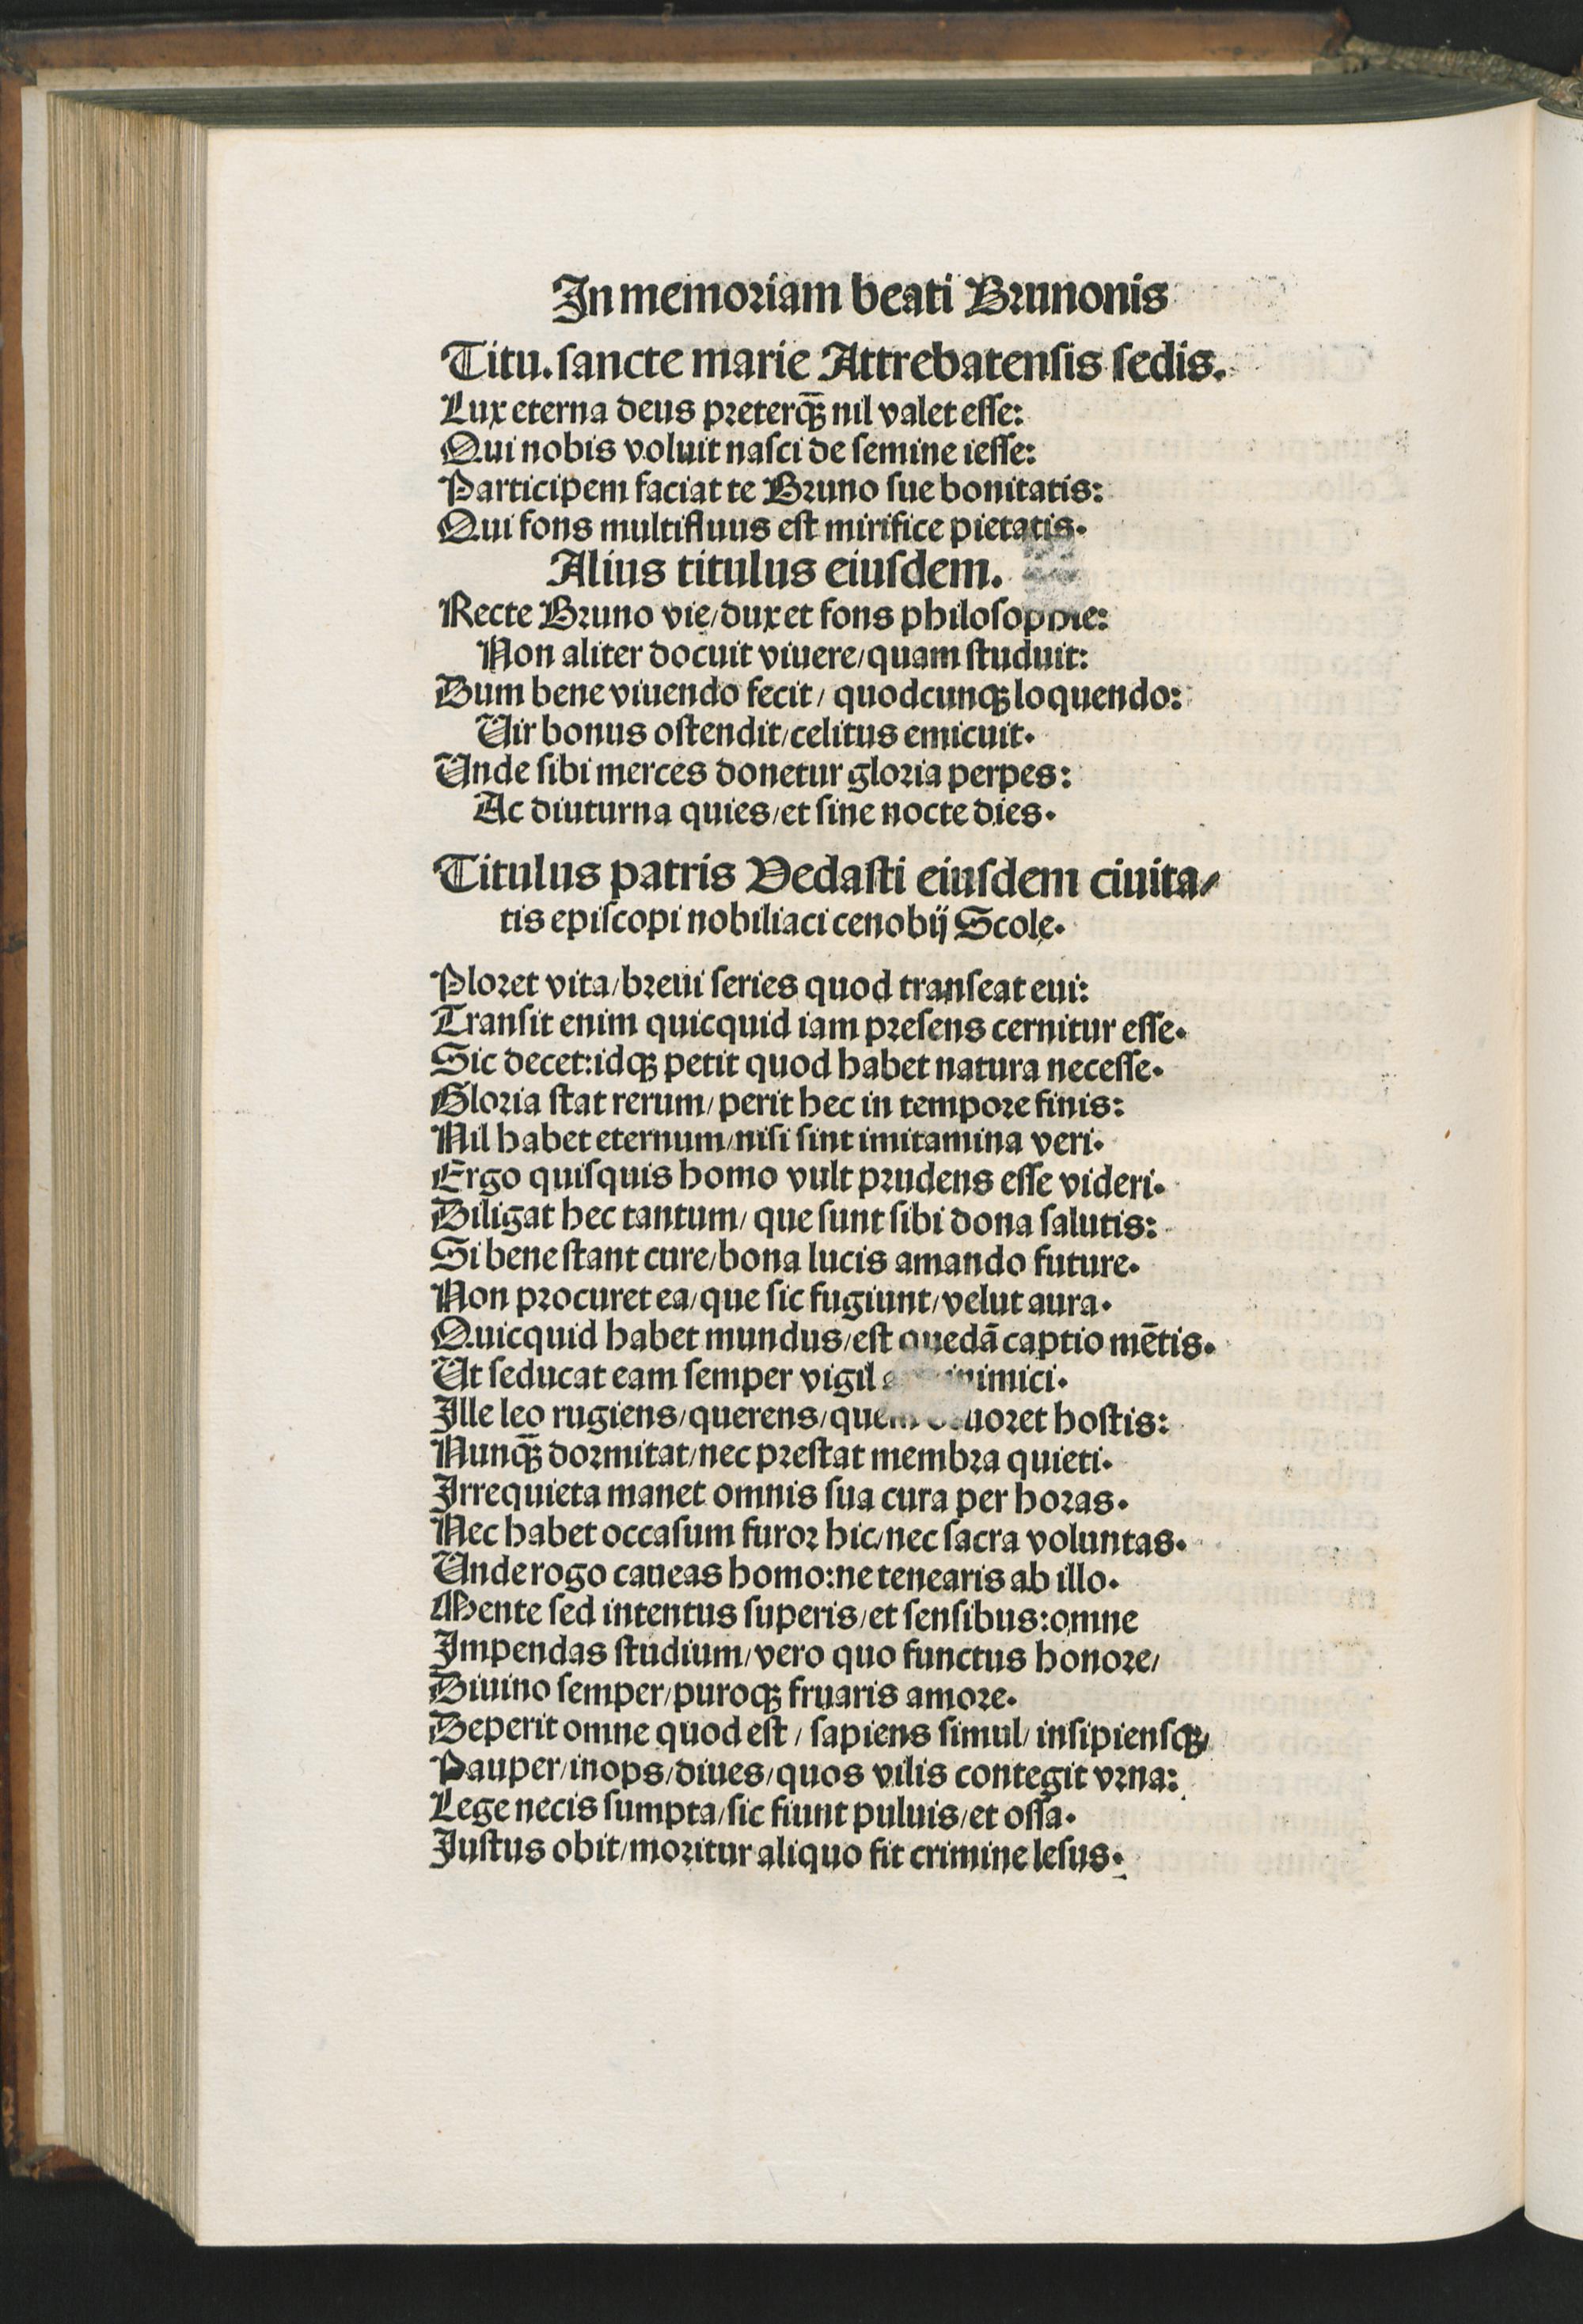 In memoriam beati Brunonis
Titu. ſancte marie Attrebatenſis ſedis.
Lux eterna deus preterꝙ̄ nil valet eſſe:
Qui nobis voluit naſci de ſemine ieſſe:
Participem faciat te Bruno ſue bonitatis:
Qui fons multifluus eſt mirifice pietatis.
Alius titulus eiuſdem.
Recte Bruno vie/dux et fons philoſophie:
Non aliter docuit viuere/quam ſtuduit:
Dum bene viuendo fecit/ quodcunqꝫ loquendo:
Uir bonus oſtendit/celitus emicuit.
Unde ſibi merces donetur gloria perpes:
Ac diuturna quies/et ſine nocte dies.
Titulus patris Vedaſti eiuſdem ciuita/
tis epiſcopi nobiliaci cenobij Scole.
Ploret vita/breui ſeries quod tranſeat eui:
Tranſit enim quicquid iam preſens cernitur eſſe.
Sic decet:idqꝫ petit quod habet natura neceſſe.
Gloria ſtat rerum/perit hec in tempore finis:
Nil habet eternum/niſi ſint imitamina veri.
Ergo quiſquis homo vult prudens eſſe videri.
Diligat hec tantum/ que ſunt ſibi dona ſalutis:
Si bene ſtant cure/bona lucis amando future.
Non procuret ea/que ſic fugiunt/velut aura.
Quicquid habet mundus/eſt quedā captio mētis.
Ut ſeducat eam ſemper vigil inimici.
Ille leo rugiens/querens/quem deuoret hoſtis:
Nunqꝫ̄ dormitat/nec preſtat membra quieti.
Irrequieta manet omnis ſua cura per horas.
Nec habet occaſum furor hic/nec ſacra voluntas.
Unde rogo caueas homo:ne tenearis ab illo.
Mente ſed intentus ſuperis/et ſenſibus:omne
Impendas ſtudium/vero quo functus honore/
Diuino ſemper/puroqꝫ fruaris amore.
Deperit omne quod eſt/ ſapiens ſimul/ inſipienſqꝫ/
Pauper/inops/diues/quos vilis contegit vrna:
Lege necis ſumpta/ſic fiunt puluis/et oſſa.
Juſtus obit/moritur aliquo fit crimine leſus.